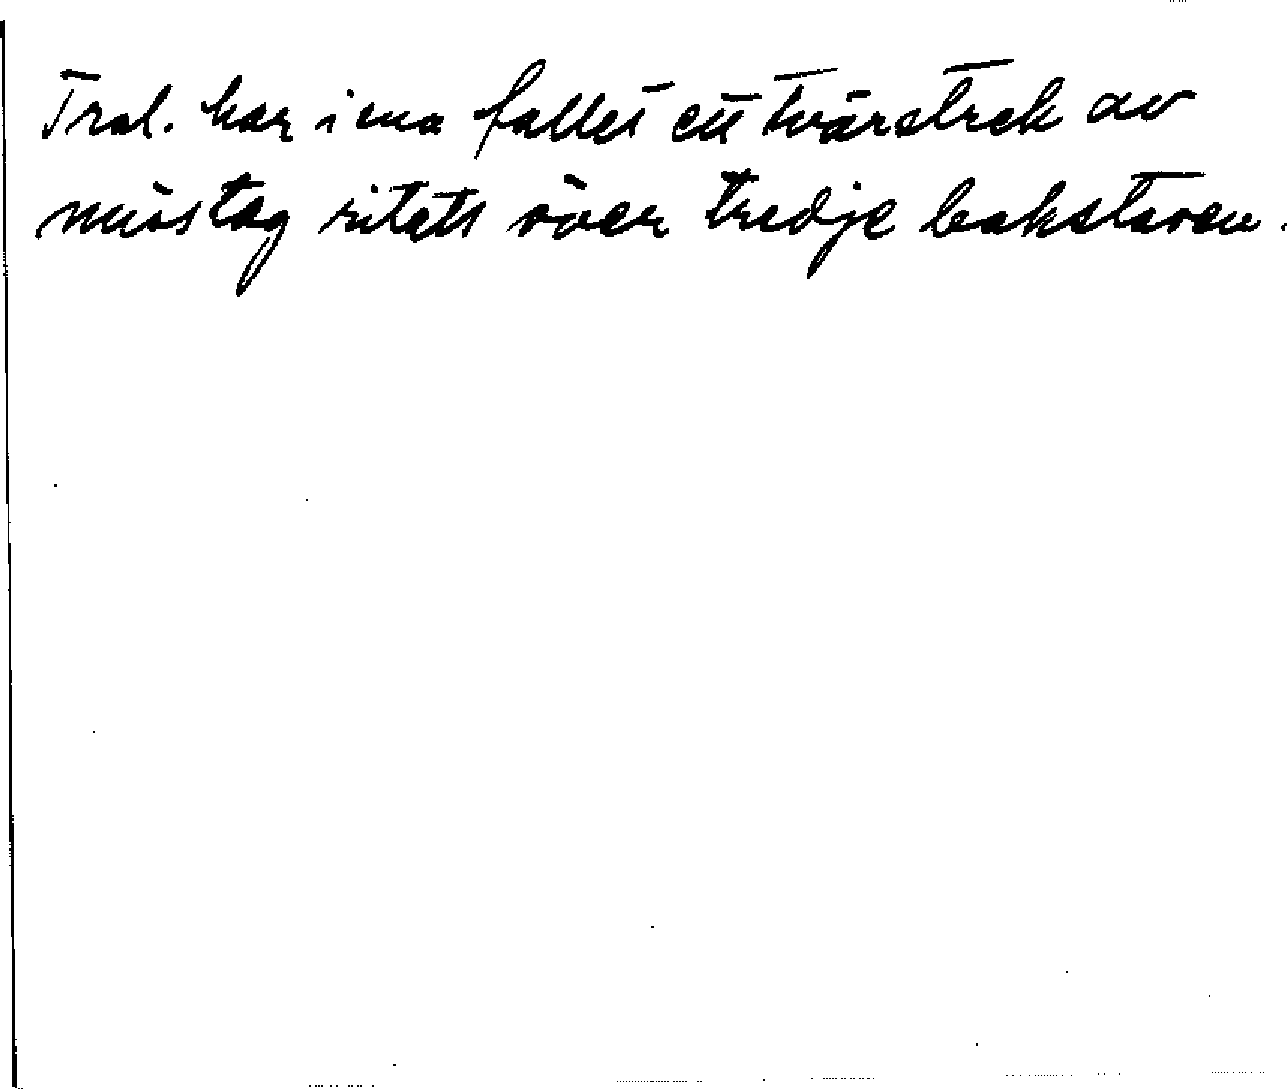 Trol. har i ena fallet ett tvärstrek av
misstag ritats över tredje bakstaven.